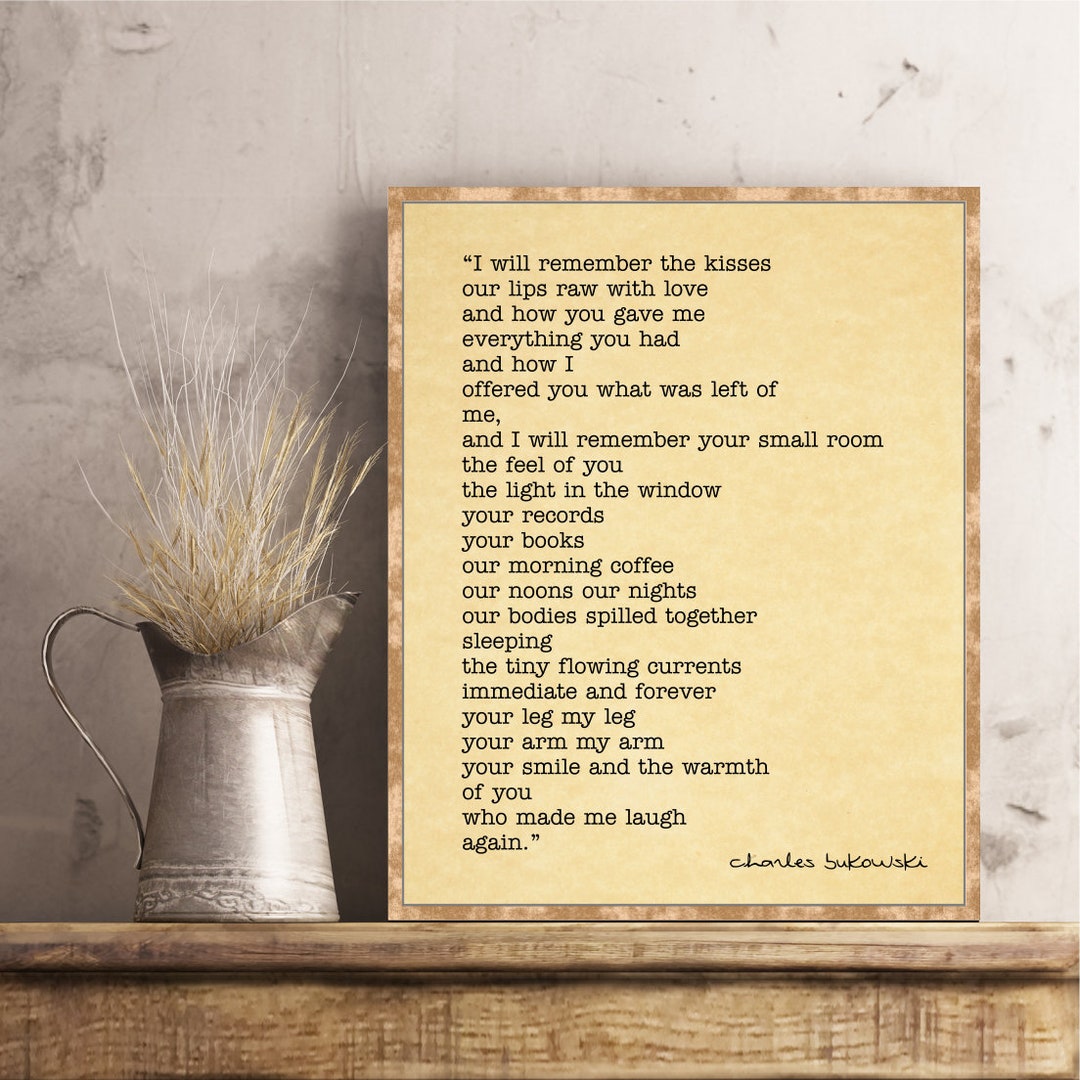 “I will remember the kisses
our lips raw with love
and how you gave me
everything you had
and how I
offered you what was left of
me,
and I will remember your small room
the feel of you
the light in the window
your records
your books
our morning coffee
our noons our nights
our bodies spilled together
sleeping
the tiny flowing currents
immediate and forever
your leg my leg
your arm my arm
your smile and the warmth
of you
who made me laugh
again.”
charles bukowski